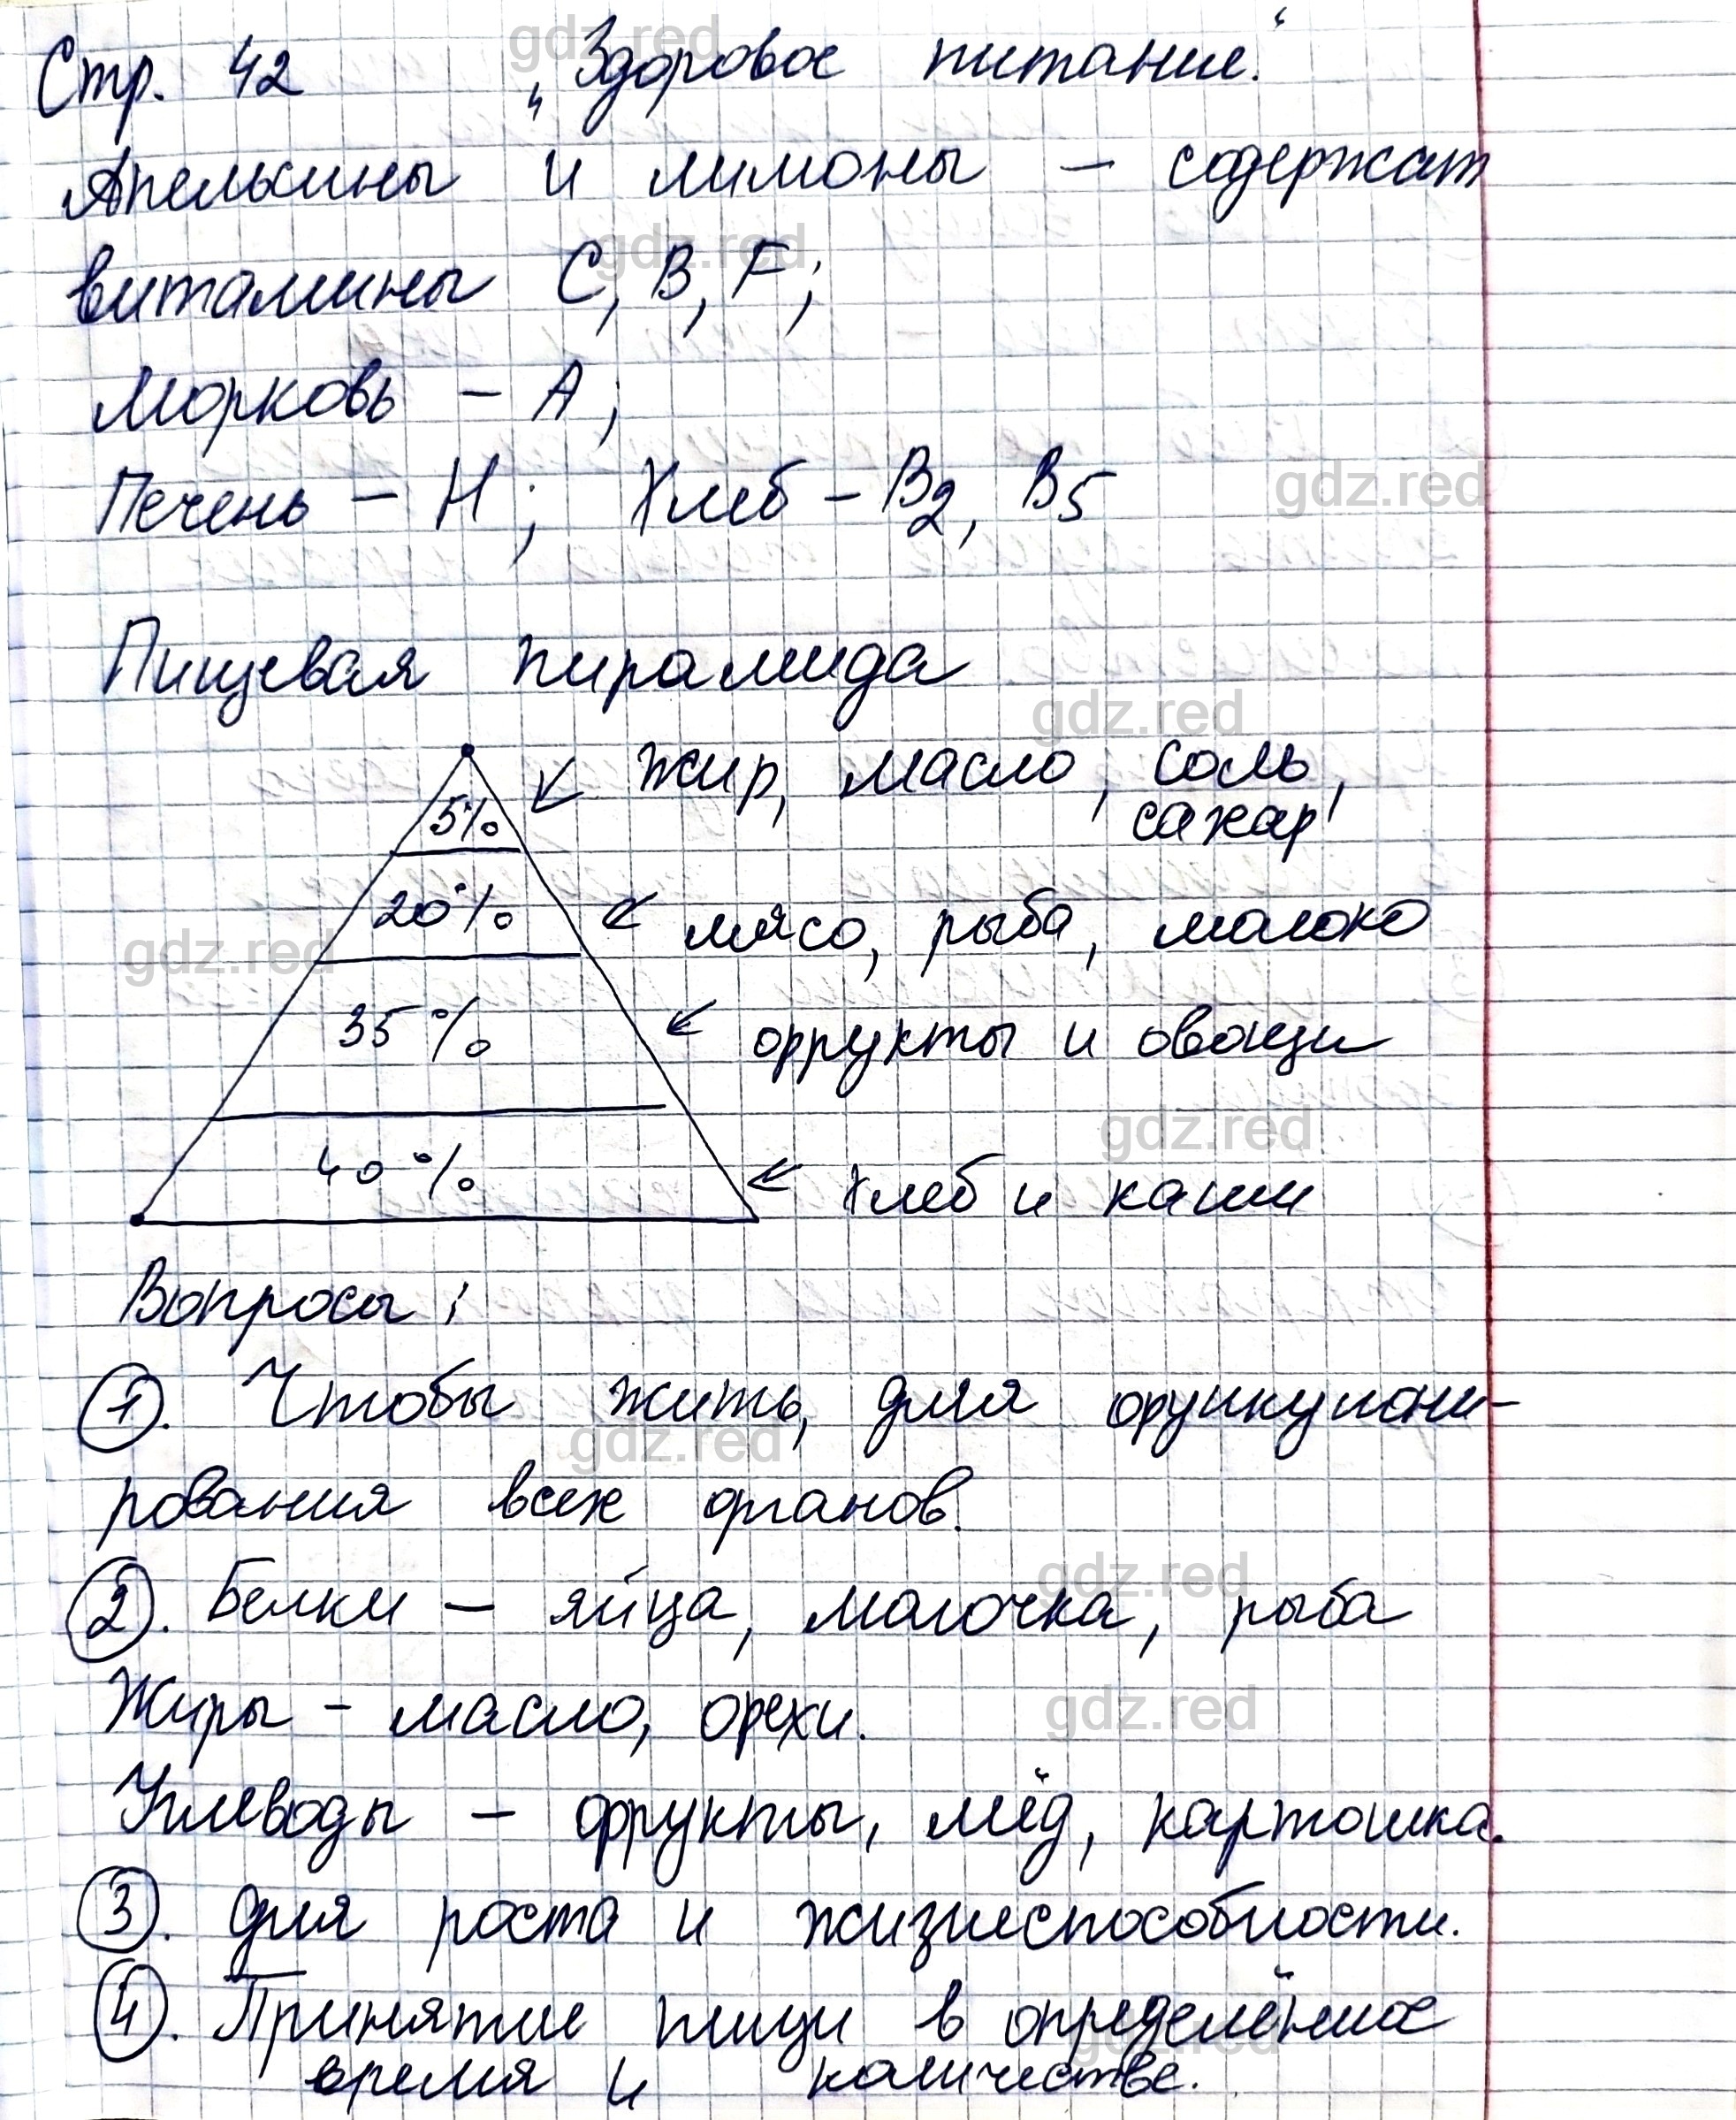 Стр. 42 „Здоровое питание."
Апельсины и лимоны - содержат
витамины C, B, F;
Морковь - A;
Печень - H; Хлеб - B2, B5
Пищевая пирамида
5% жир, масло, соль,
сахар
20% мясо, рыба, молоко
35% фрукты и овощи
40% хлеб и каши
Вопросы:
1. Чтобы жить, для функциони-
рования всех органов.
2. Белки - яйца, молочка, рыба
Жиры - масло, орехи.
Углеводы - фрукты, мёд, картошка.
3. Для роста и жизнеспособности.
4. Принятие пищи в определённое
время и количестве.
gdz.red
gdz.red
gdz.red
gdz.red
gdz.red
gdz.red
gdz.red
gdz.red
gdz.red
gdz.red